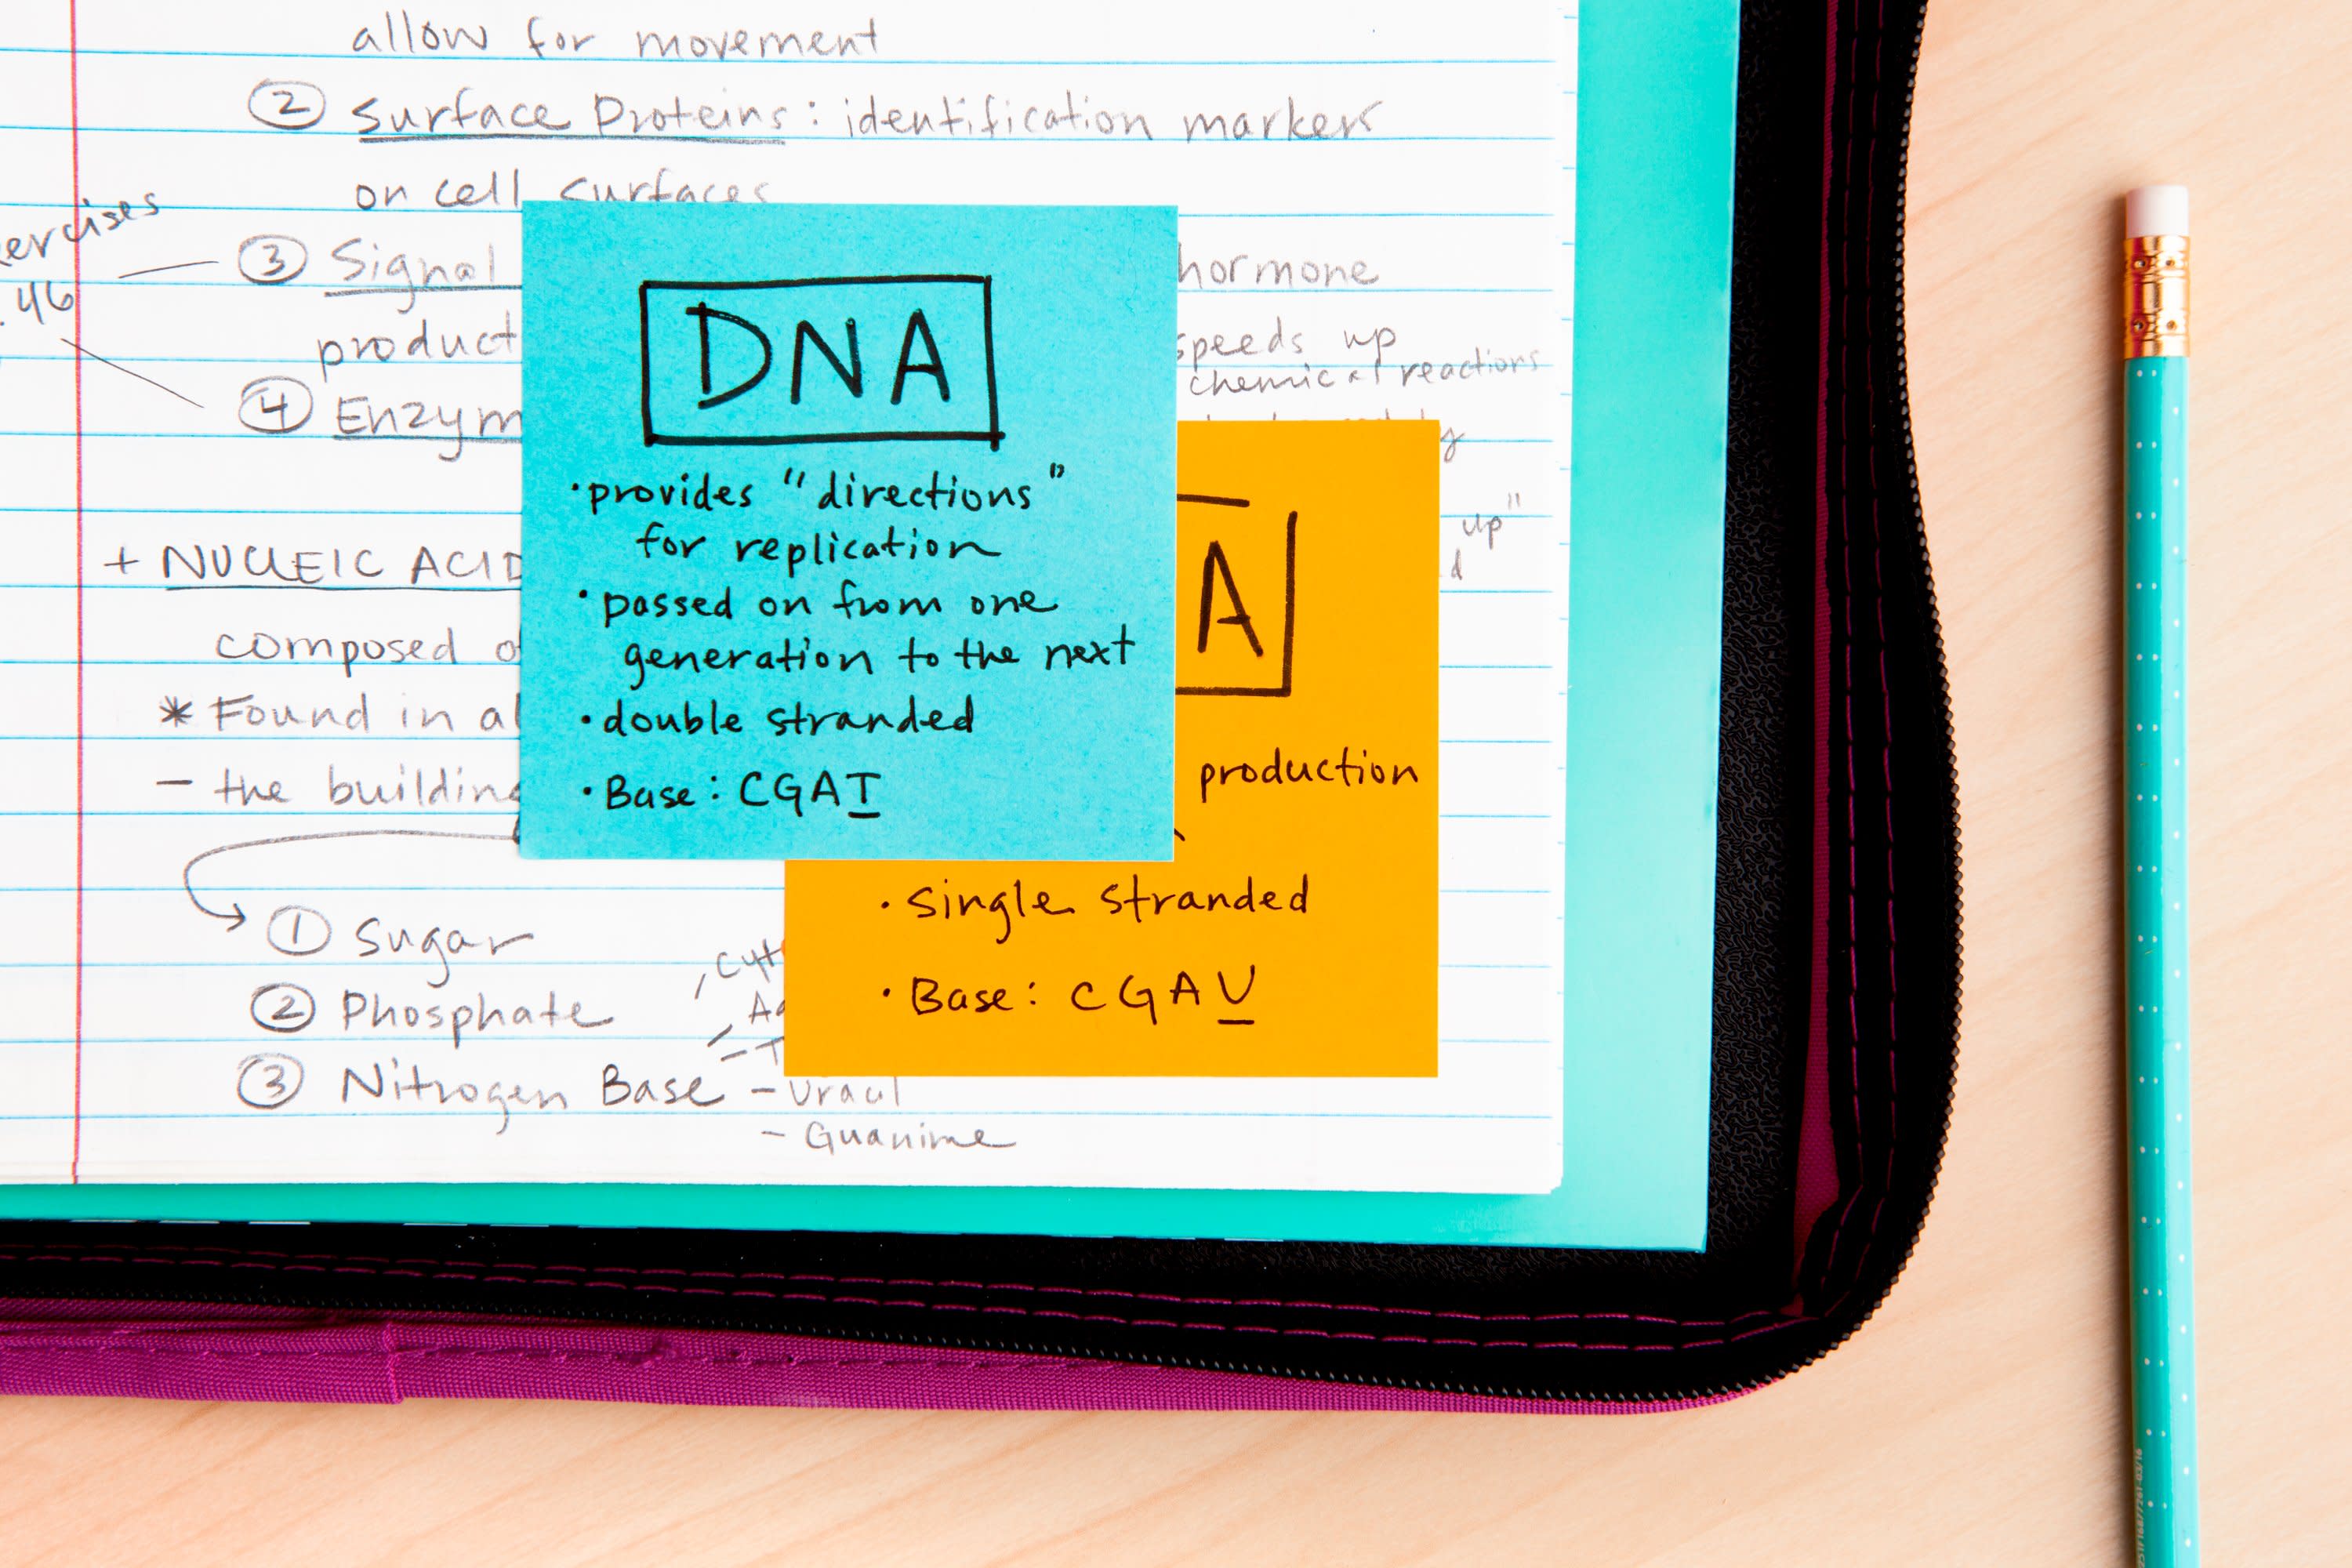 allow for movement
② Surface Proteins: identification markers
on cell surfaces
ercises
③ Signal
hormone
. 46
product
speeds up
chemical reactions
④ Enzym
up"
+ NUCLEIC ACID
composed
* Found in al
- the building
① Sugar
② Phosphate
③ Nitrogen Base
- Uracil
- Guanine
DNA
• provides "directions"
for replication
• passed on from one
generation to the next
• double stranded
• Base: CGAT
A
production
• Single stranded
• Base: CGAU